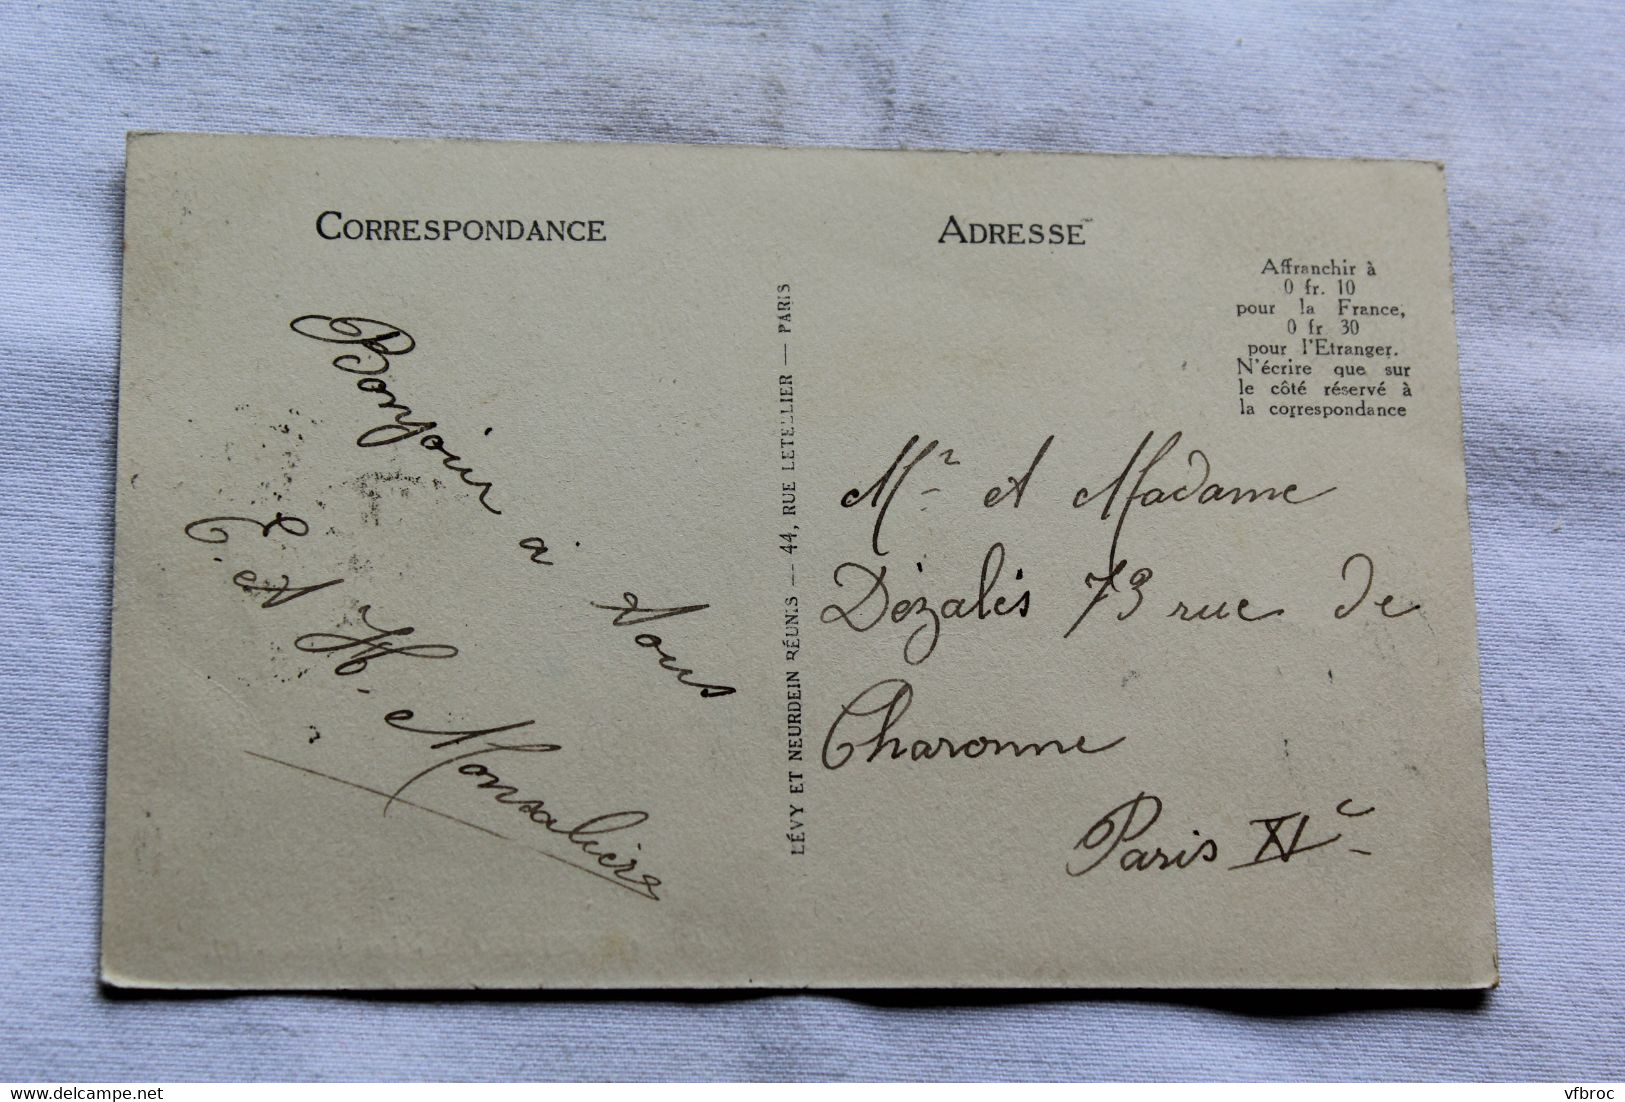 CORRESPONDANCE
Bonjour à vous
E. et H. Monsalière
LÉVY ET NEURDEIN RÉUNIS — 44, RUE LETELLIER — PARIS
ADRESSE
Affranchir à
0 fr. 10
pour la France,
0 fr 30
pour l'Etranger.
N'écrire que sur
le côté réservé à
la correspondance
Mr et Madame
Dézalès 73 rue de
Charonne
Paris XIe
vfbroc